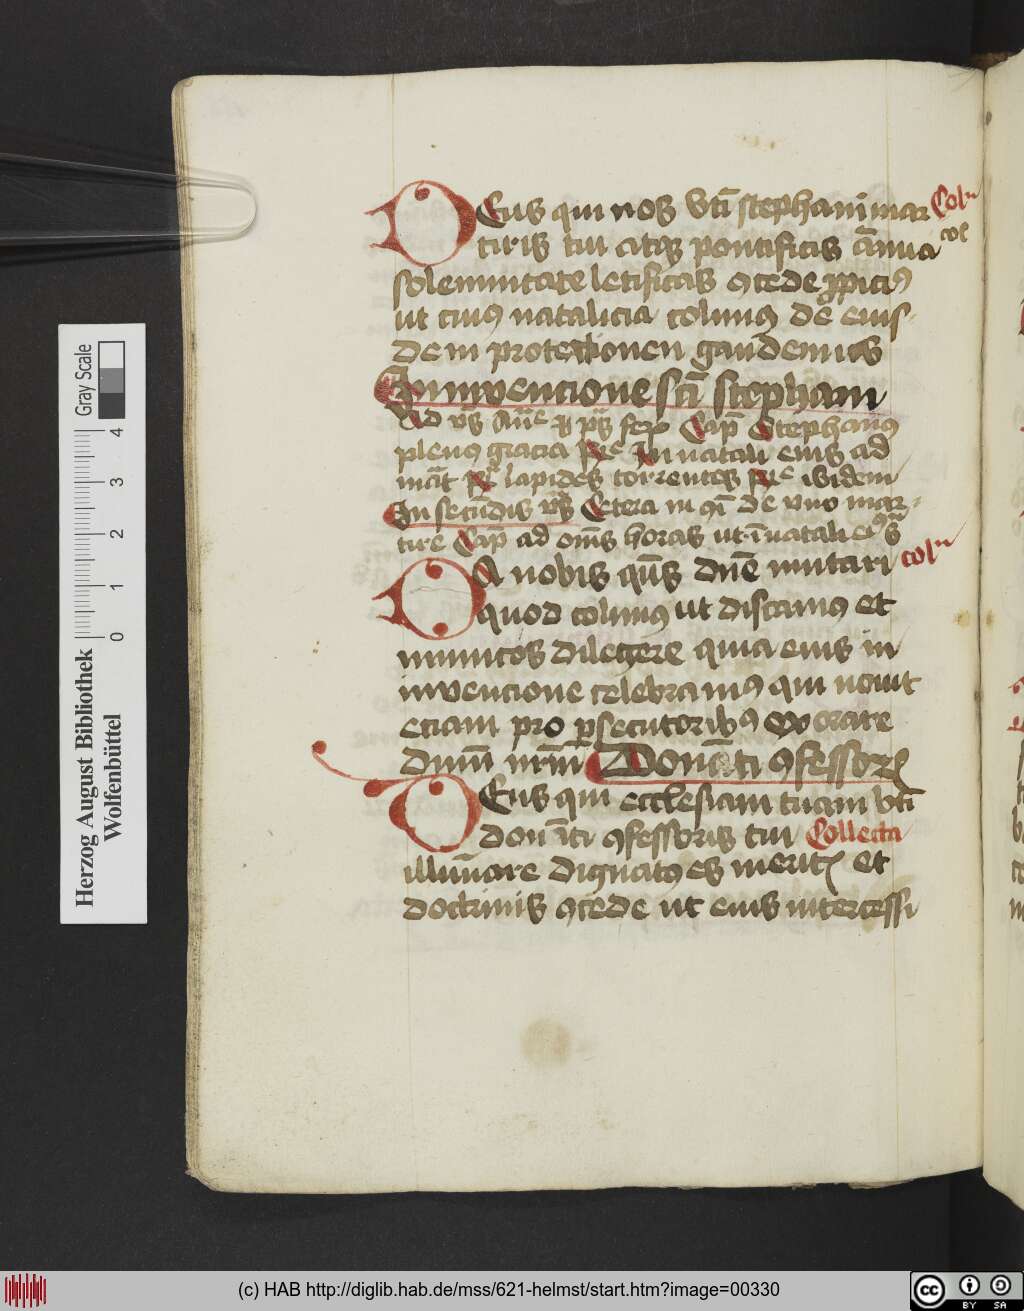 DEus qui nos bti stephani mar Colr
tiris tui atqz pontificis annua coe
solemnitate letificas ꝯcede ꝓpiciꝰ
ut cuiꝰ natalicia colimꝰ de eius
dem protextionen gaudemus
In invencione sci stephani
Ad vs Cap Stephanꝰ
plenꝰ gracia In natali eius ad
mat lapides torrentes ibidem
In secundis vs Cetera in de uno mar
tire Cap ad oms horas ut in natali eiꝰ
DA nobis qus dne imitari colr
quod colimꝰ ut discamꝰ et
inimicos diligere quia eius in
invencione celebramꝰ qui novit
etiam pro ꝑsecutoribꝰ exorare
dnm nrm Donati ꝯfessoris
DEus qui ecclesiam tuam bti
donati ꝯfessoris tui Collecta
illuminare dignatꝰ es meritis et
doctrinis ꝯcede ut eius intercessi
Herzog August Bibliothek
Wolfenbüttel
0 1 2 3 4
Gray Scale
(c) HAB http://diglib.hab.de/mss/621-helmst/start.htm?image=00330
cc BY SA